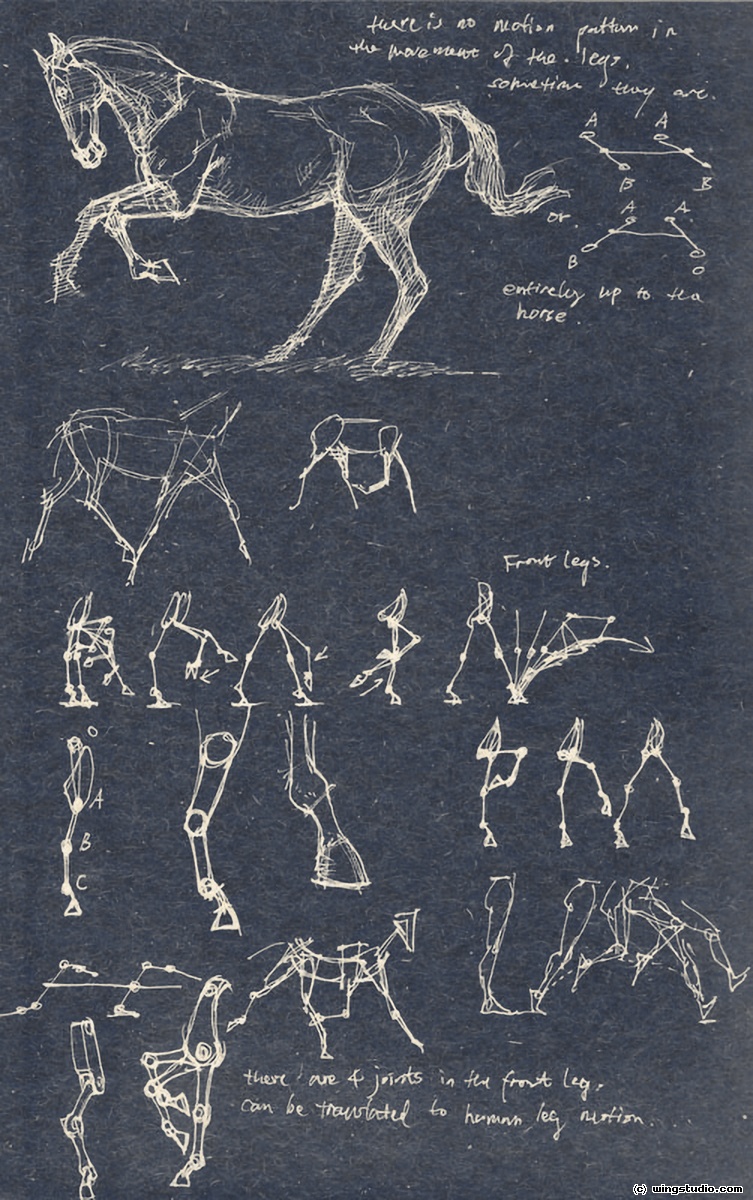 there is no motion pattern in
the movement of the legs.
sometime they are.
A A
B B
or.
A A
B
entirely up to the
horse.
Front legs.
A
B
C
there are 4 joints in the front leg.
can be translated to human leg motion....
(c) wingstudio.com